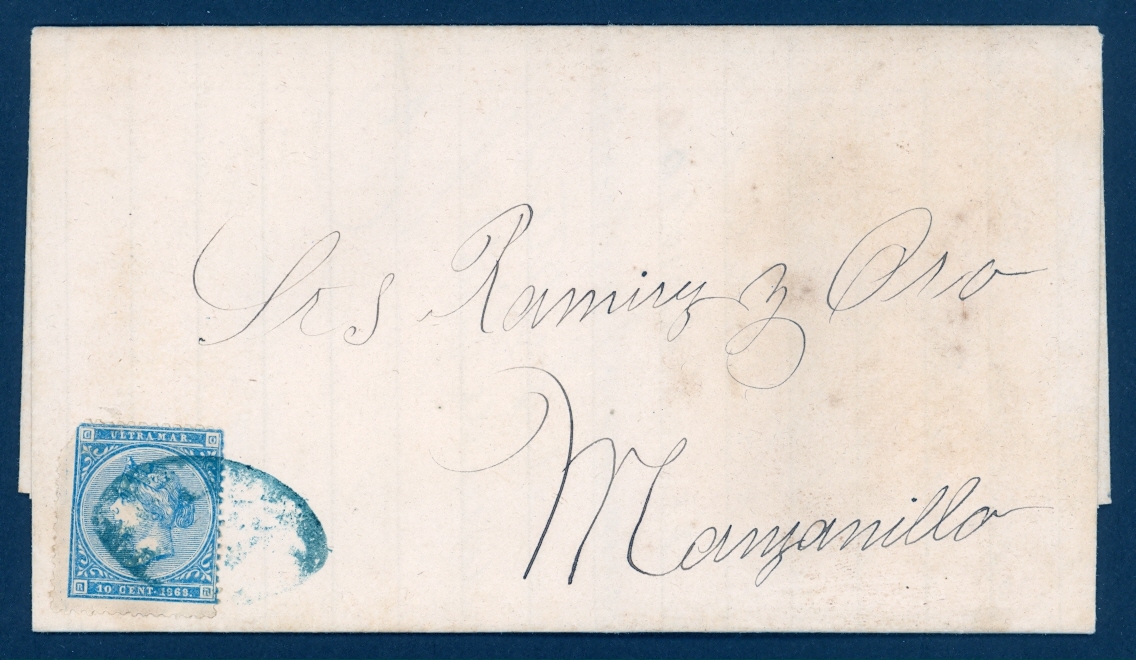 Srs Ramirez y Oro
Manzanillo
ULTRAMAR.
10 CENT. 1868.